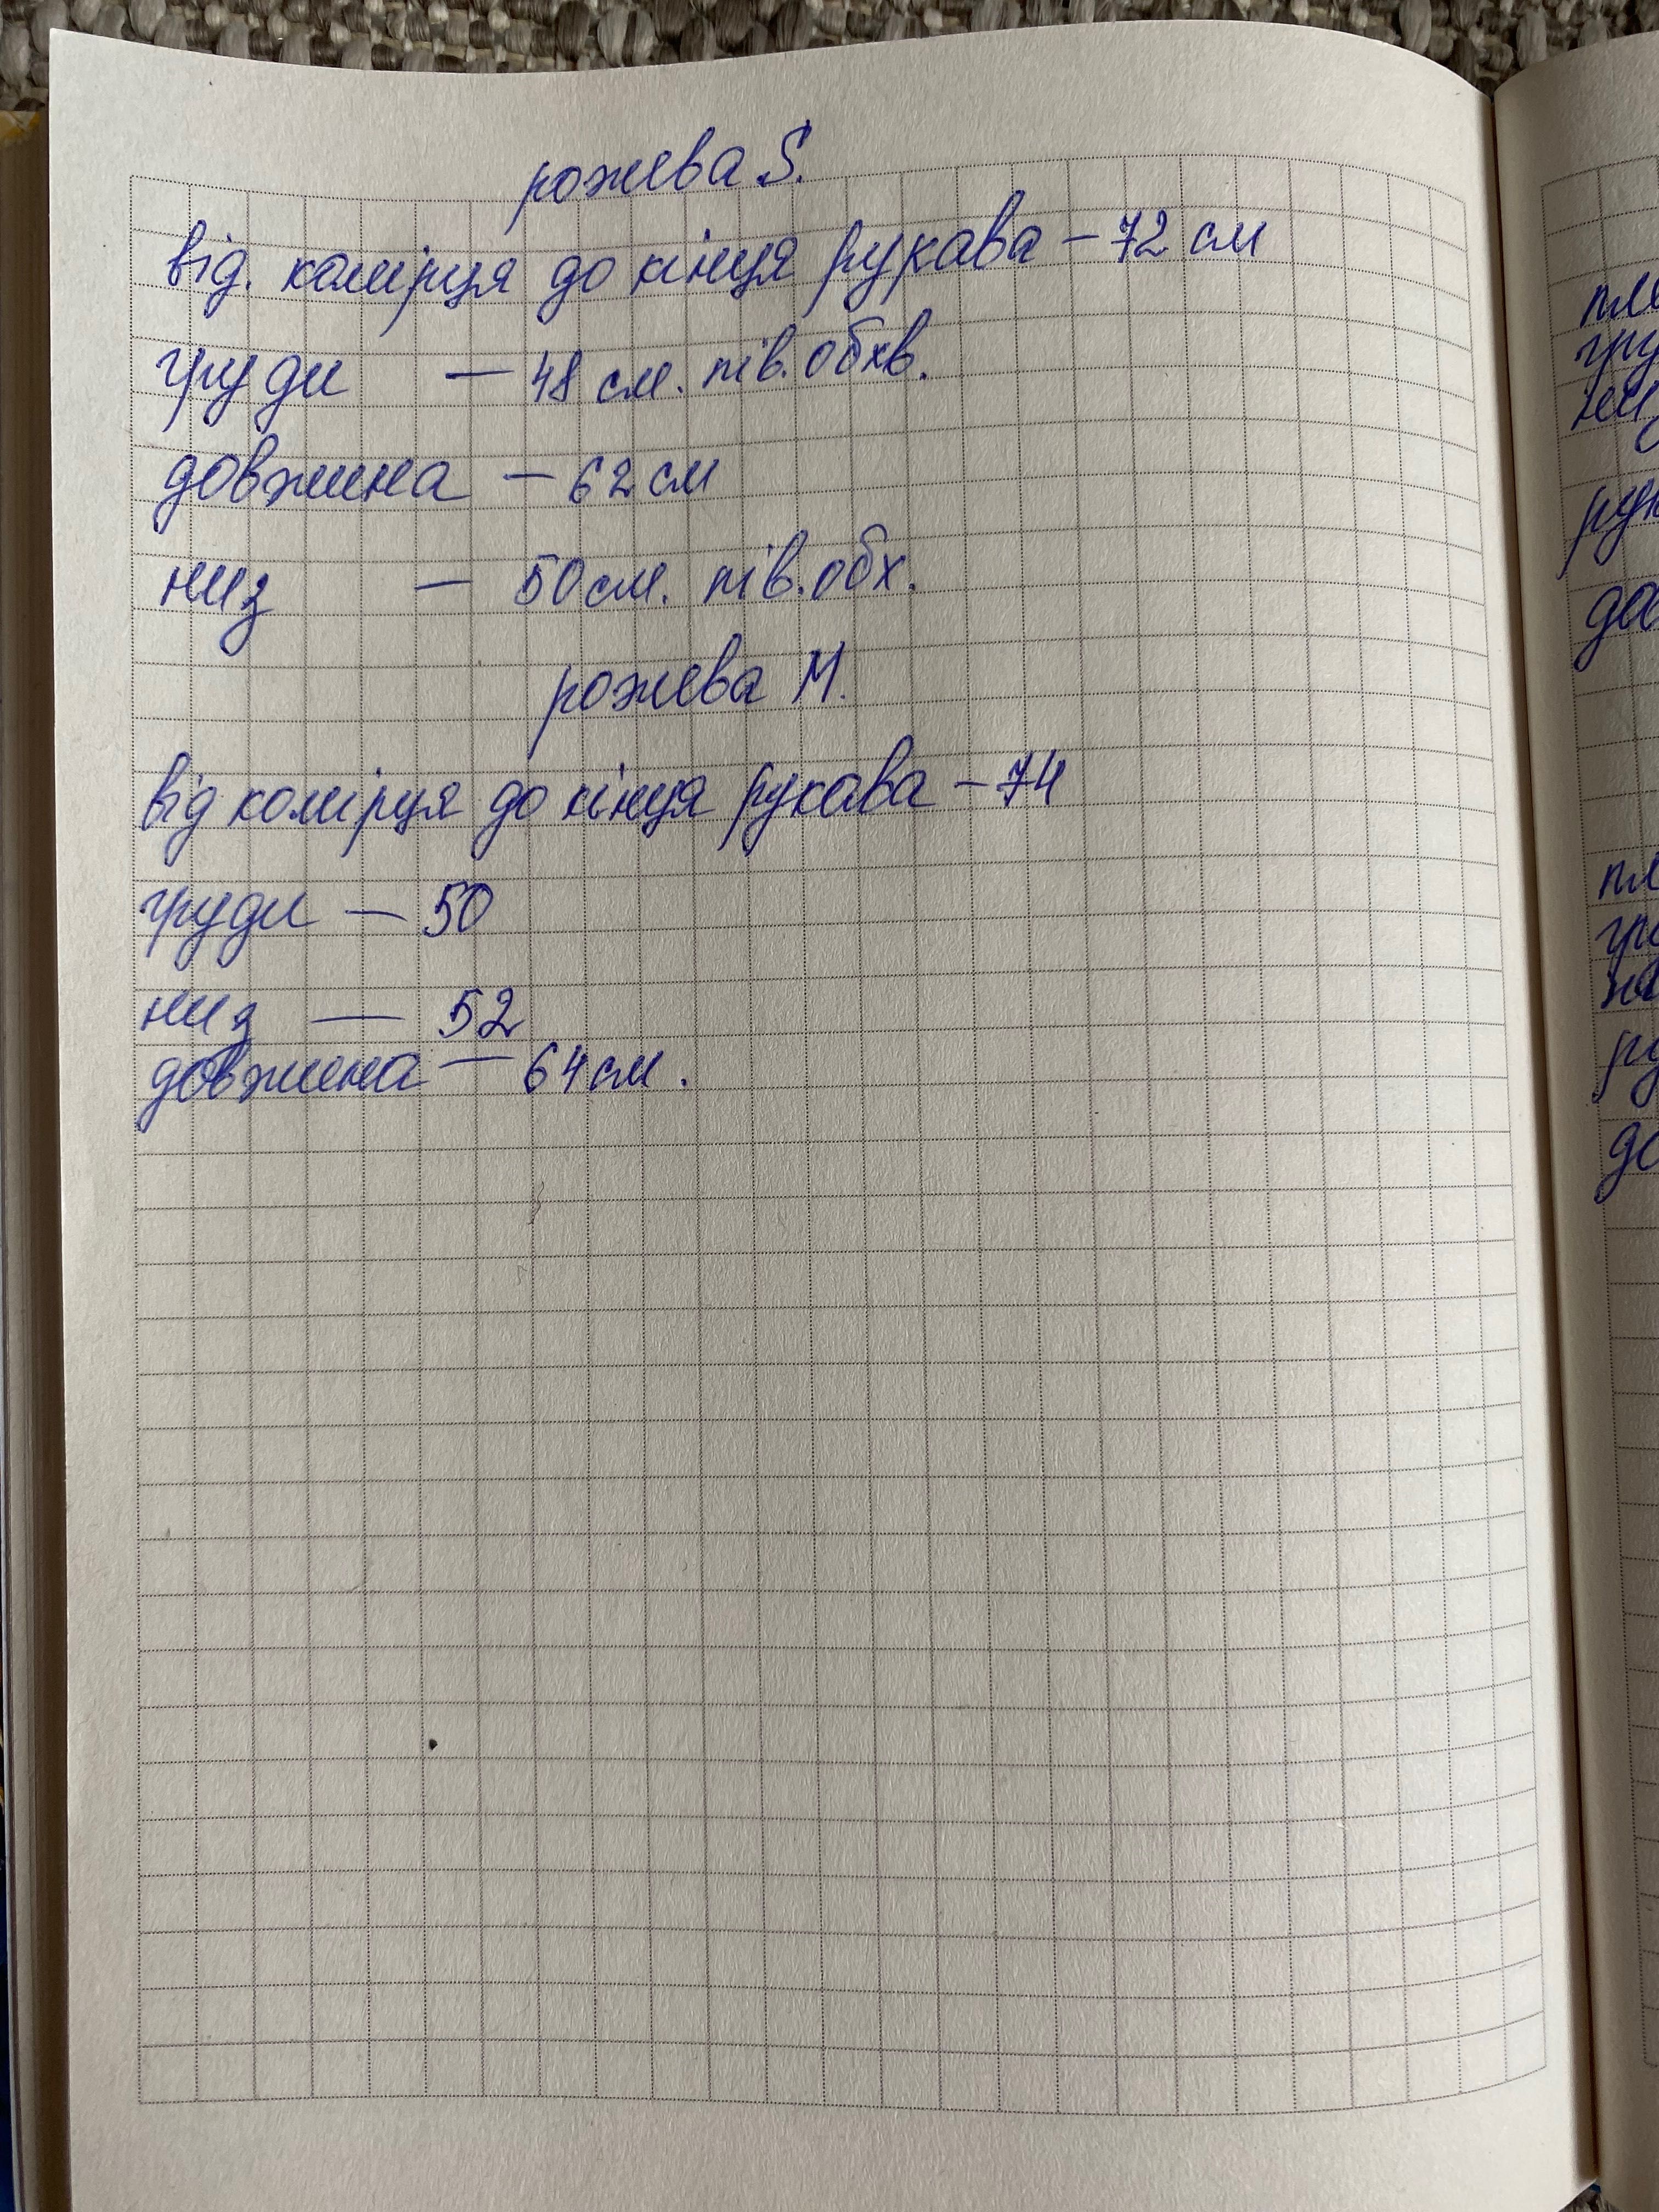 рожева S.
від. комірця до кінця рукава – 72 см
груди – 48 см. пів. обхв.
довжина – 62 см
низ – 50 см. пів. обх.
рожева М.
від комірця до кінця рукава – 74
груди – 50
низ – 52
довжина – 64 см.